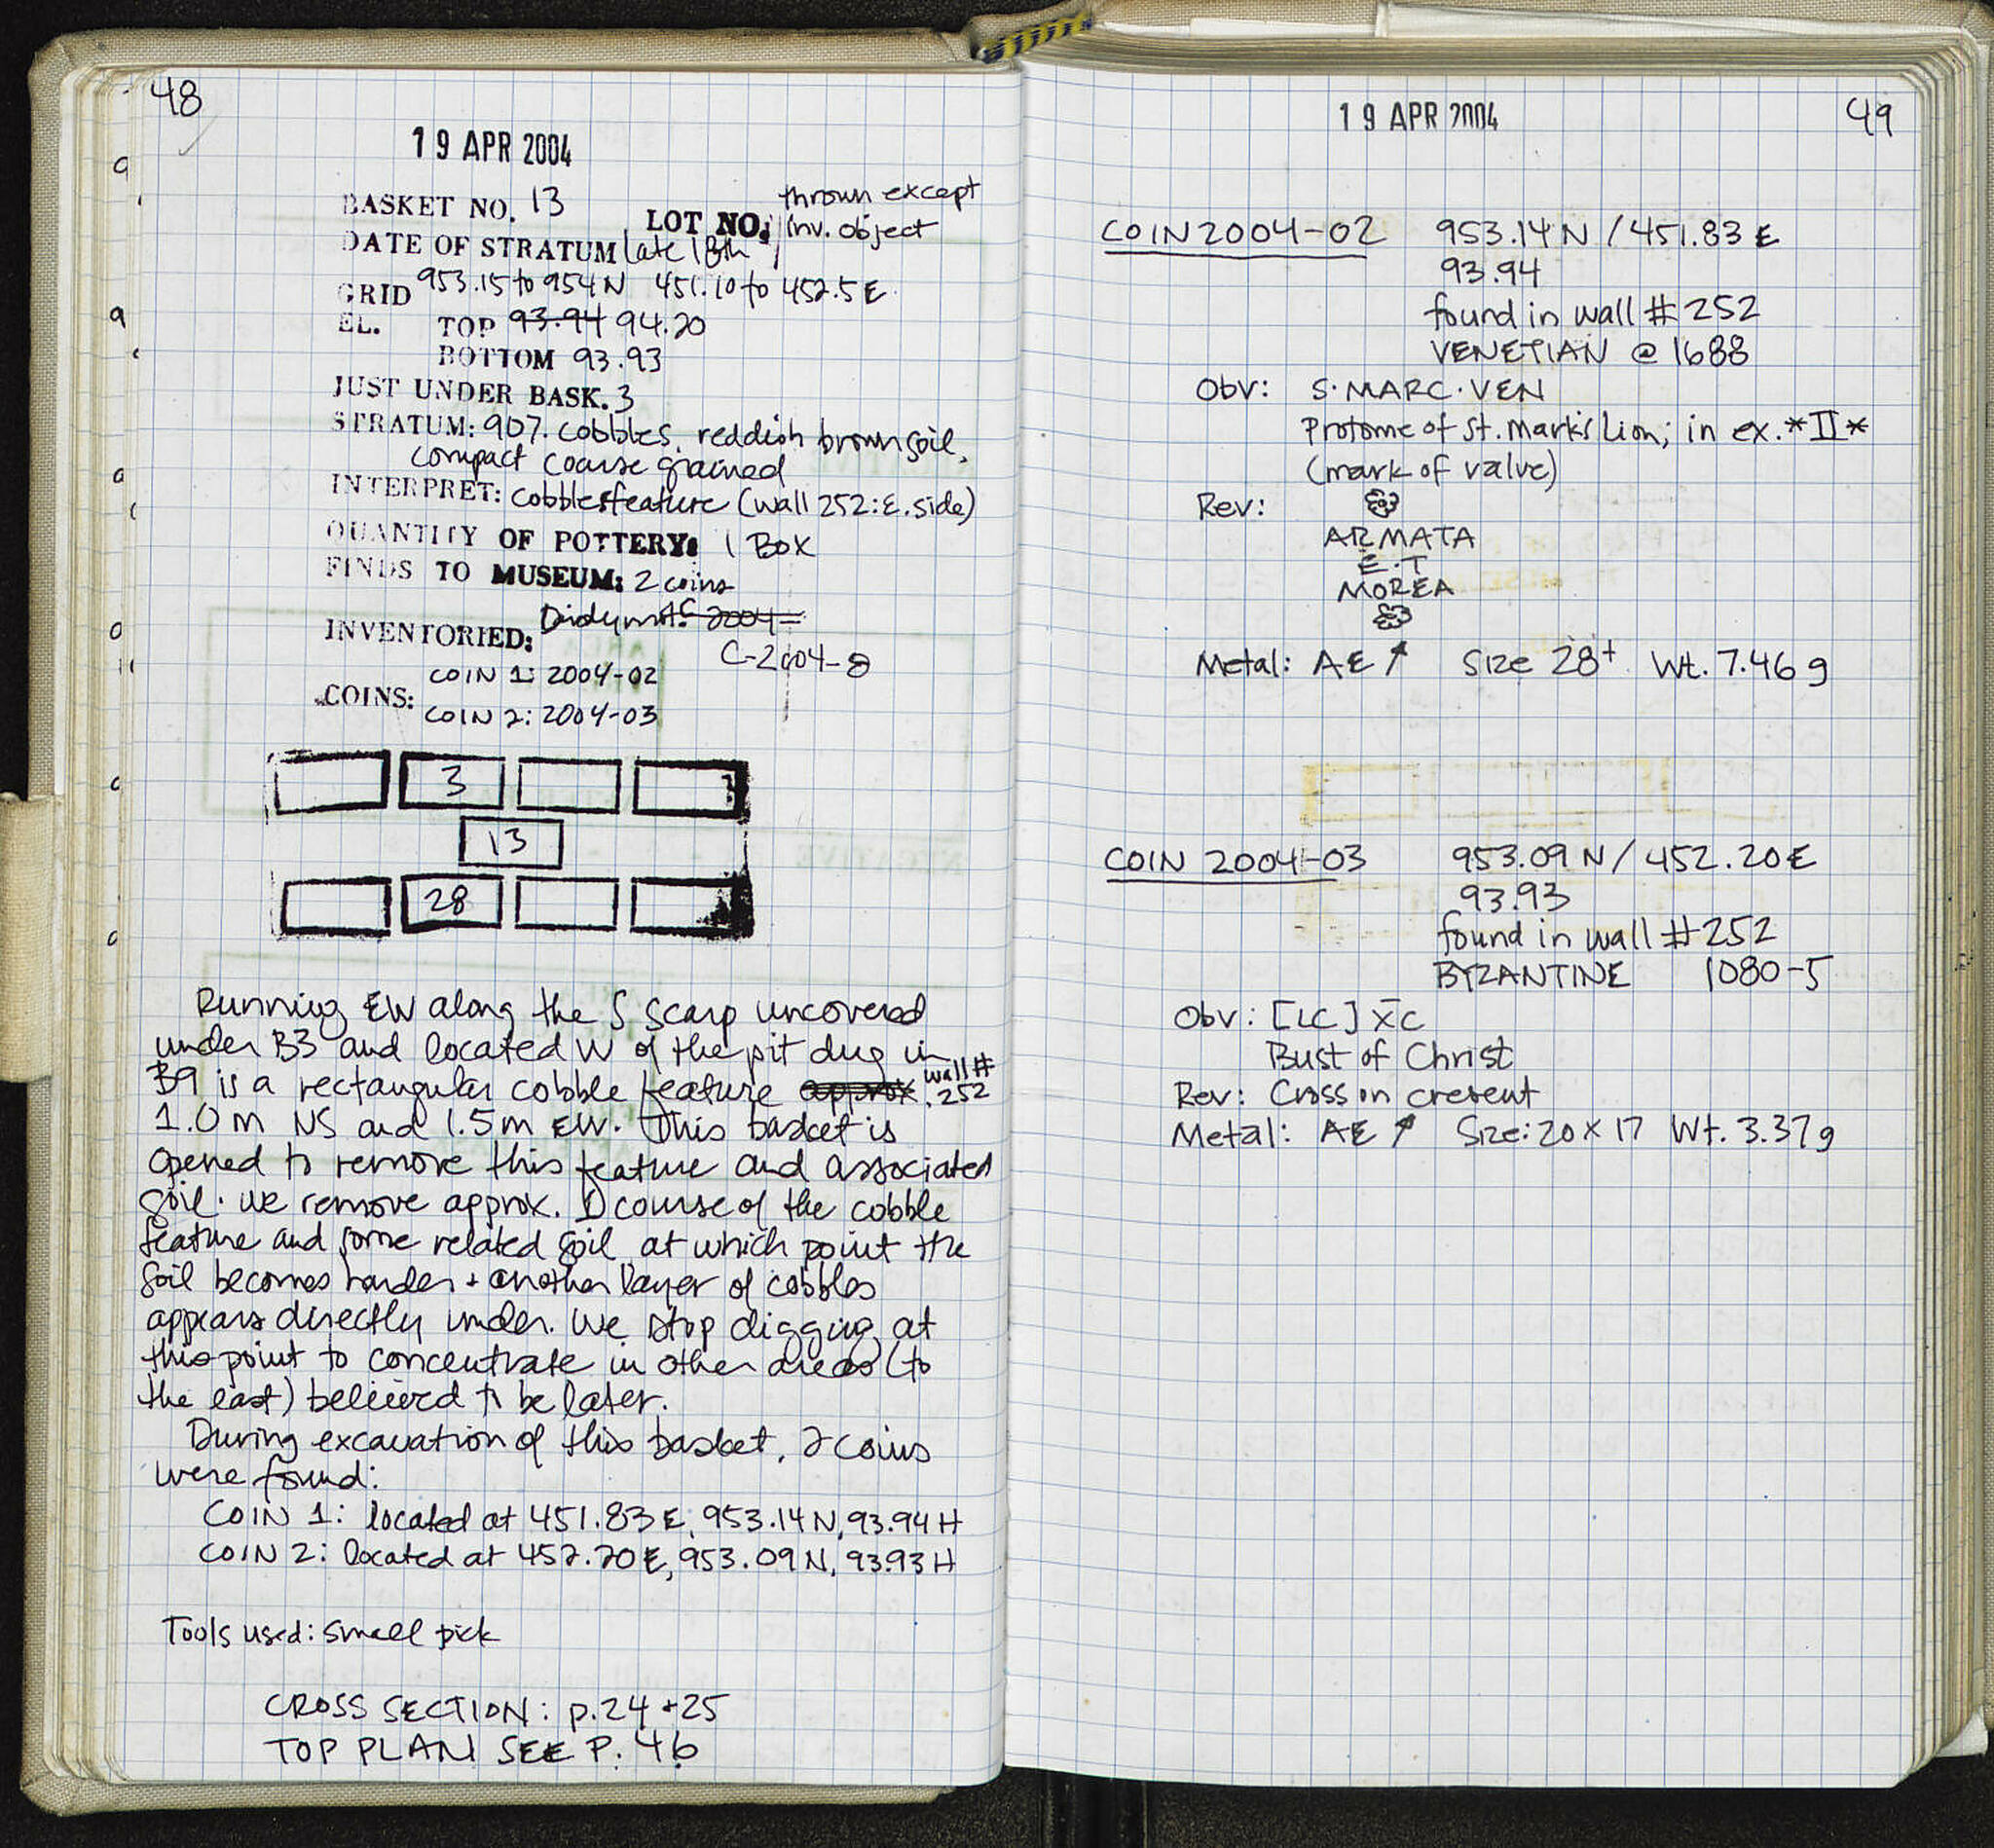 48
19 APR 2004
BASKET NO. 13
thrown except
LOT NO: inv. object
DATE OF STRATUM late 18th
GRID 953.15 to 954 N 451.10 to 452.5 E
EL. TOP 93.94 94.20
BOTTOM 93.93
JUST UNDER BASK. 3
STRATUM: 907. cobbles, reddish brown soil,
compact coarse grained
INTERPRET: cobbles feature (wall 252: E. side)
QUANTITY OF POTTERY: 1 Box
FINDS TO MUSEUM: 2 coins
INVENTORIED: 2004-
C-2004-8
COIN 1: 2004-02
COINS:
COIN 2: 2004-03
3
13
28
Running EW along the S scarp uncovered
under B3 and located W of the pit dug in
B9 is a rectangular cobble feature approx. wall # 252
1.0 m NS and 1.5 m EW. This basket is
opened to remove this feature and associated
soil. We remove approx. 1 course of the cobble
feature and some related soil at which point the
soil becomes harder + another layer of cobbles
appears directly under. We stop digging at
this point to concentrate in other areas (to
the east) believed to be later.
During excavation of this basket, 2 coins
were found:
COIN 1: located at 451.83 E, 953.14 N, 93.94 H
COIN 2: located at 452.20 E, 953.09 N, 93.93 H
Tools used: small pick
CROSS SECTION: p. 24 + 25
TOP PLAN SEE P. 46
19 APR 2004
49
COIN 2004-02 953.14 N / 451.83 E
93.94
found in wall # 252
VENETIAN @ 1688
Obv: S·MARC·VEN
Protome of St. Mark's Lion; in ex. *II*
(mark of value)
Rev:
ARMATA
E·T
MOREA
Metal: AE ↗ Size 28+ Wt. 7.46 g
COIN 2004-03 953.09 N / 452.20 E
93.93
found in wall # 252
BYZANTINE 1080-5
Obv: [IC] X̄C
Bust of Christ
Rev: Cross on cresent
Metal: AE ↗ Size: 20 x 17 Wt. 3.37 g